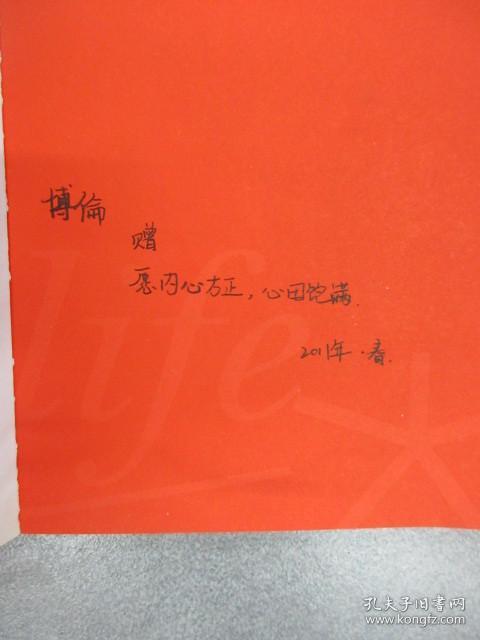 博倫
赠
愿内心方正，心田饱满.
2011年·春.
life
孔夫子旧书网
www.kongfz.com